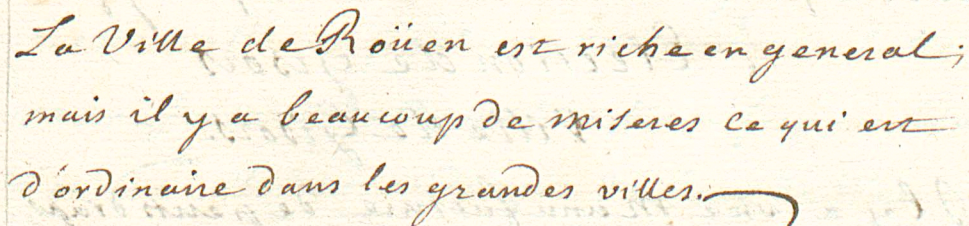 La Ville de Roüen est riche en general;
mais il y a beaucoup de miseres ce qui est
d'ordinaire dans les grandes villes.